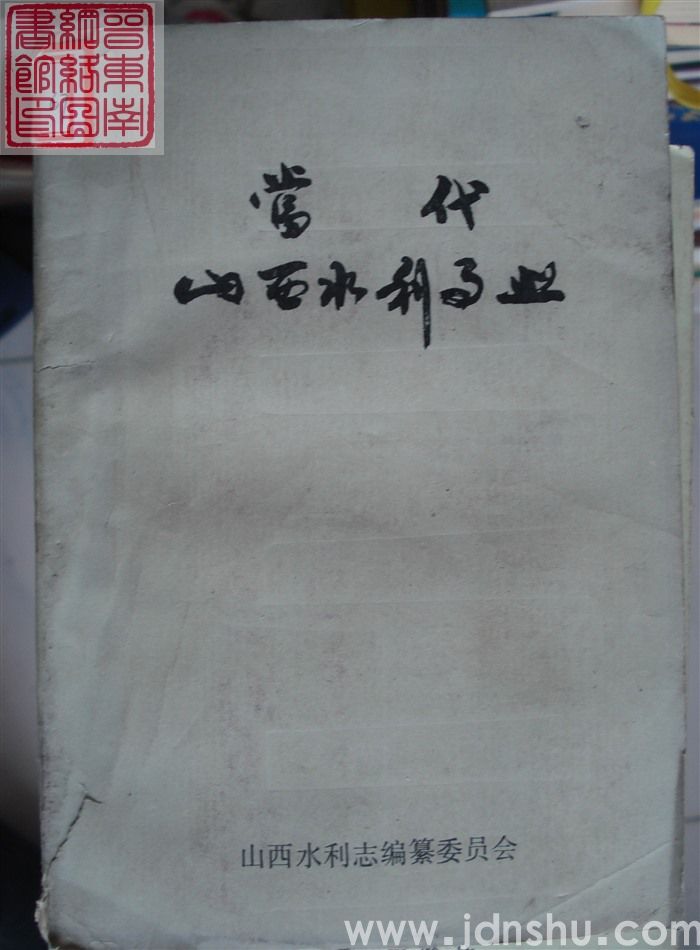 晋东南
網絡圖
書館印
當代
山西水利事业
山西水利志编纂委员会
www.jdnshu.com